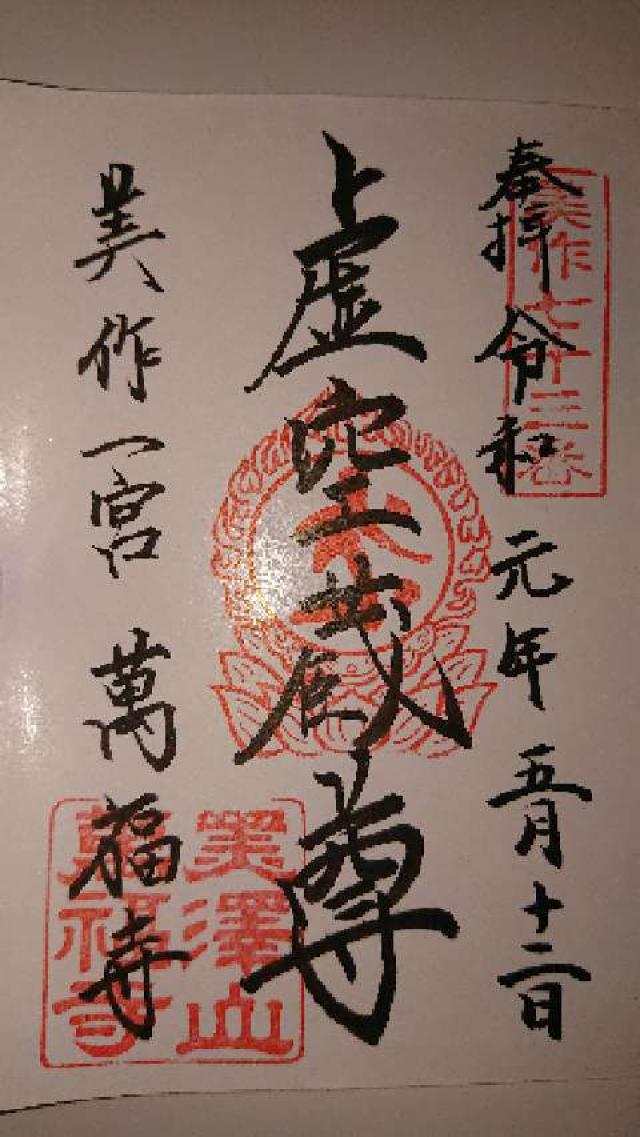 奉拝 令和元年五月十二日
美作七十三番
虚空蔵尊
美作一宮 萬福寺
黒澤山
萬福寺